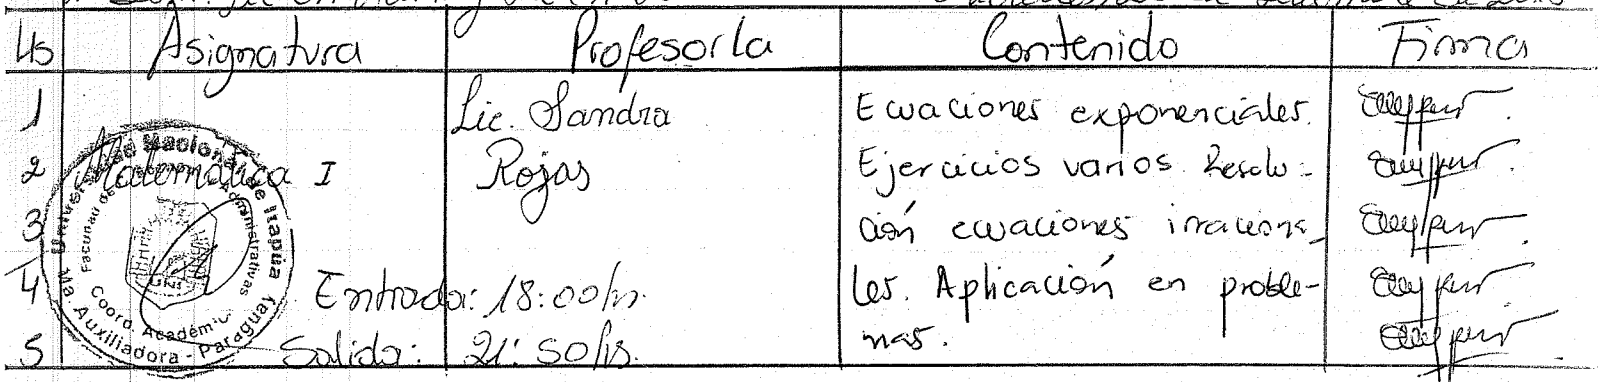 Hs Asignatura Profesor/a Contenido Firma
1 Lic. Sandra Ecuaciones exponenciales.
2 Matemática I Rojas Ejercicios varios Resolu-
3 ción ecuaciones irraciona-
4 Entrada: 18:00hs. les. Aplicación en proble-
5 Salida: 21:50hs. mas.
Universidad Nacional de Itapúa
Facultad de Administrativas
Coord. Académic
Ma. Auxiliadora - Paraguay